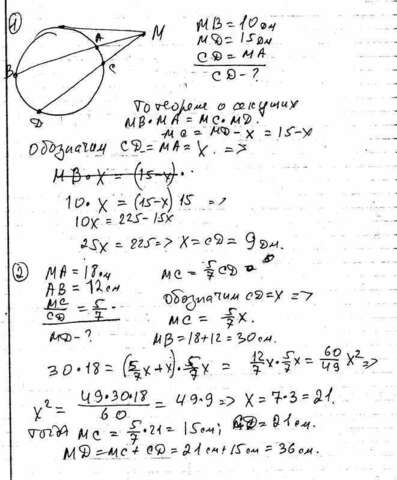 ①
A
M
B
C
D
MB = 10 дм
MD = 15 дм
CD = MA
CD - ?
По теореме о секущих
MB · MA = MC · MD.
MC = MD - X = 15 - X
Обозначим CD = MA = X. =>
MB · X = (15-X) ·
10 · X = (15-X) 15 =>
10X = 225 - 15X
25X = 225 => X = CD = 9 дм.
②
MA = 18 см
AB = 12 см
MC/CD = 5/7 .
MD - ?
MC = 5/7 CD
обозначим CD = X =>
MC = 5/7 X.
MB = 18 + 12 = 30 см.
30 · 18 = (5/7 X + X) · 5/7 X = 12/7 X · 5/7 X = 60/49 X² =>
X² = 49 · 30 · 18 / 60 = 49 · 9 => X = 7 · 3 = 21.
Тогда MC = 5/7 · 21 = 15 см; CD = 21 см.
MD = MC + CD = 21 см + 15 см = 36 см.